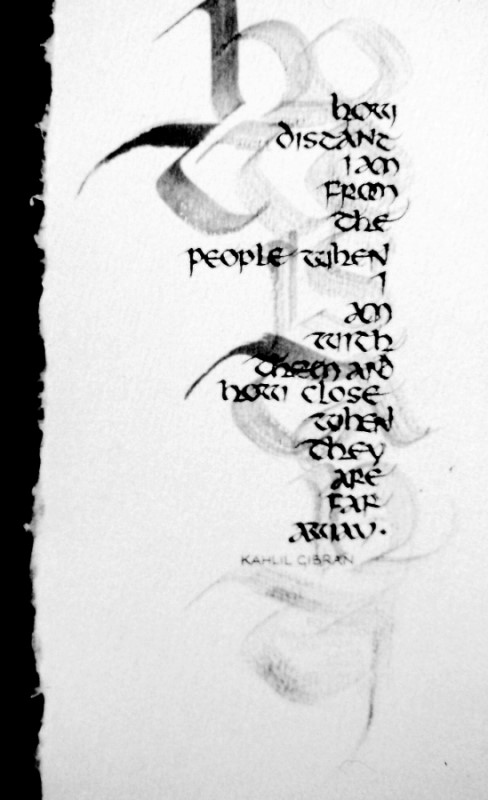 how
distant
I am
from
the
people when
I
am
with
them and
how close
when
they
are
far
away.
KAHLIL GIBRAN